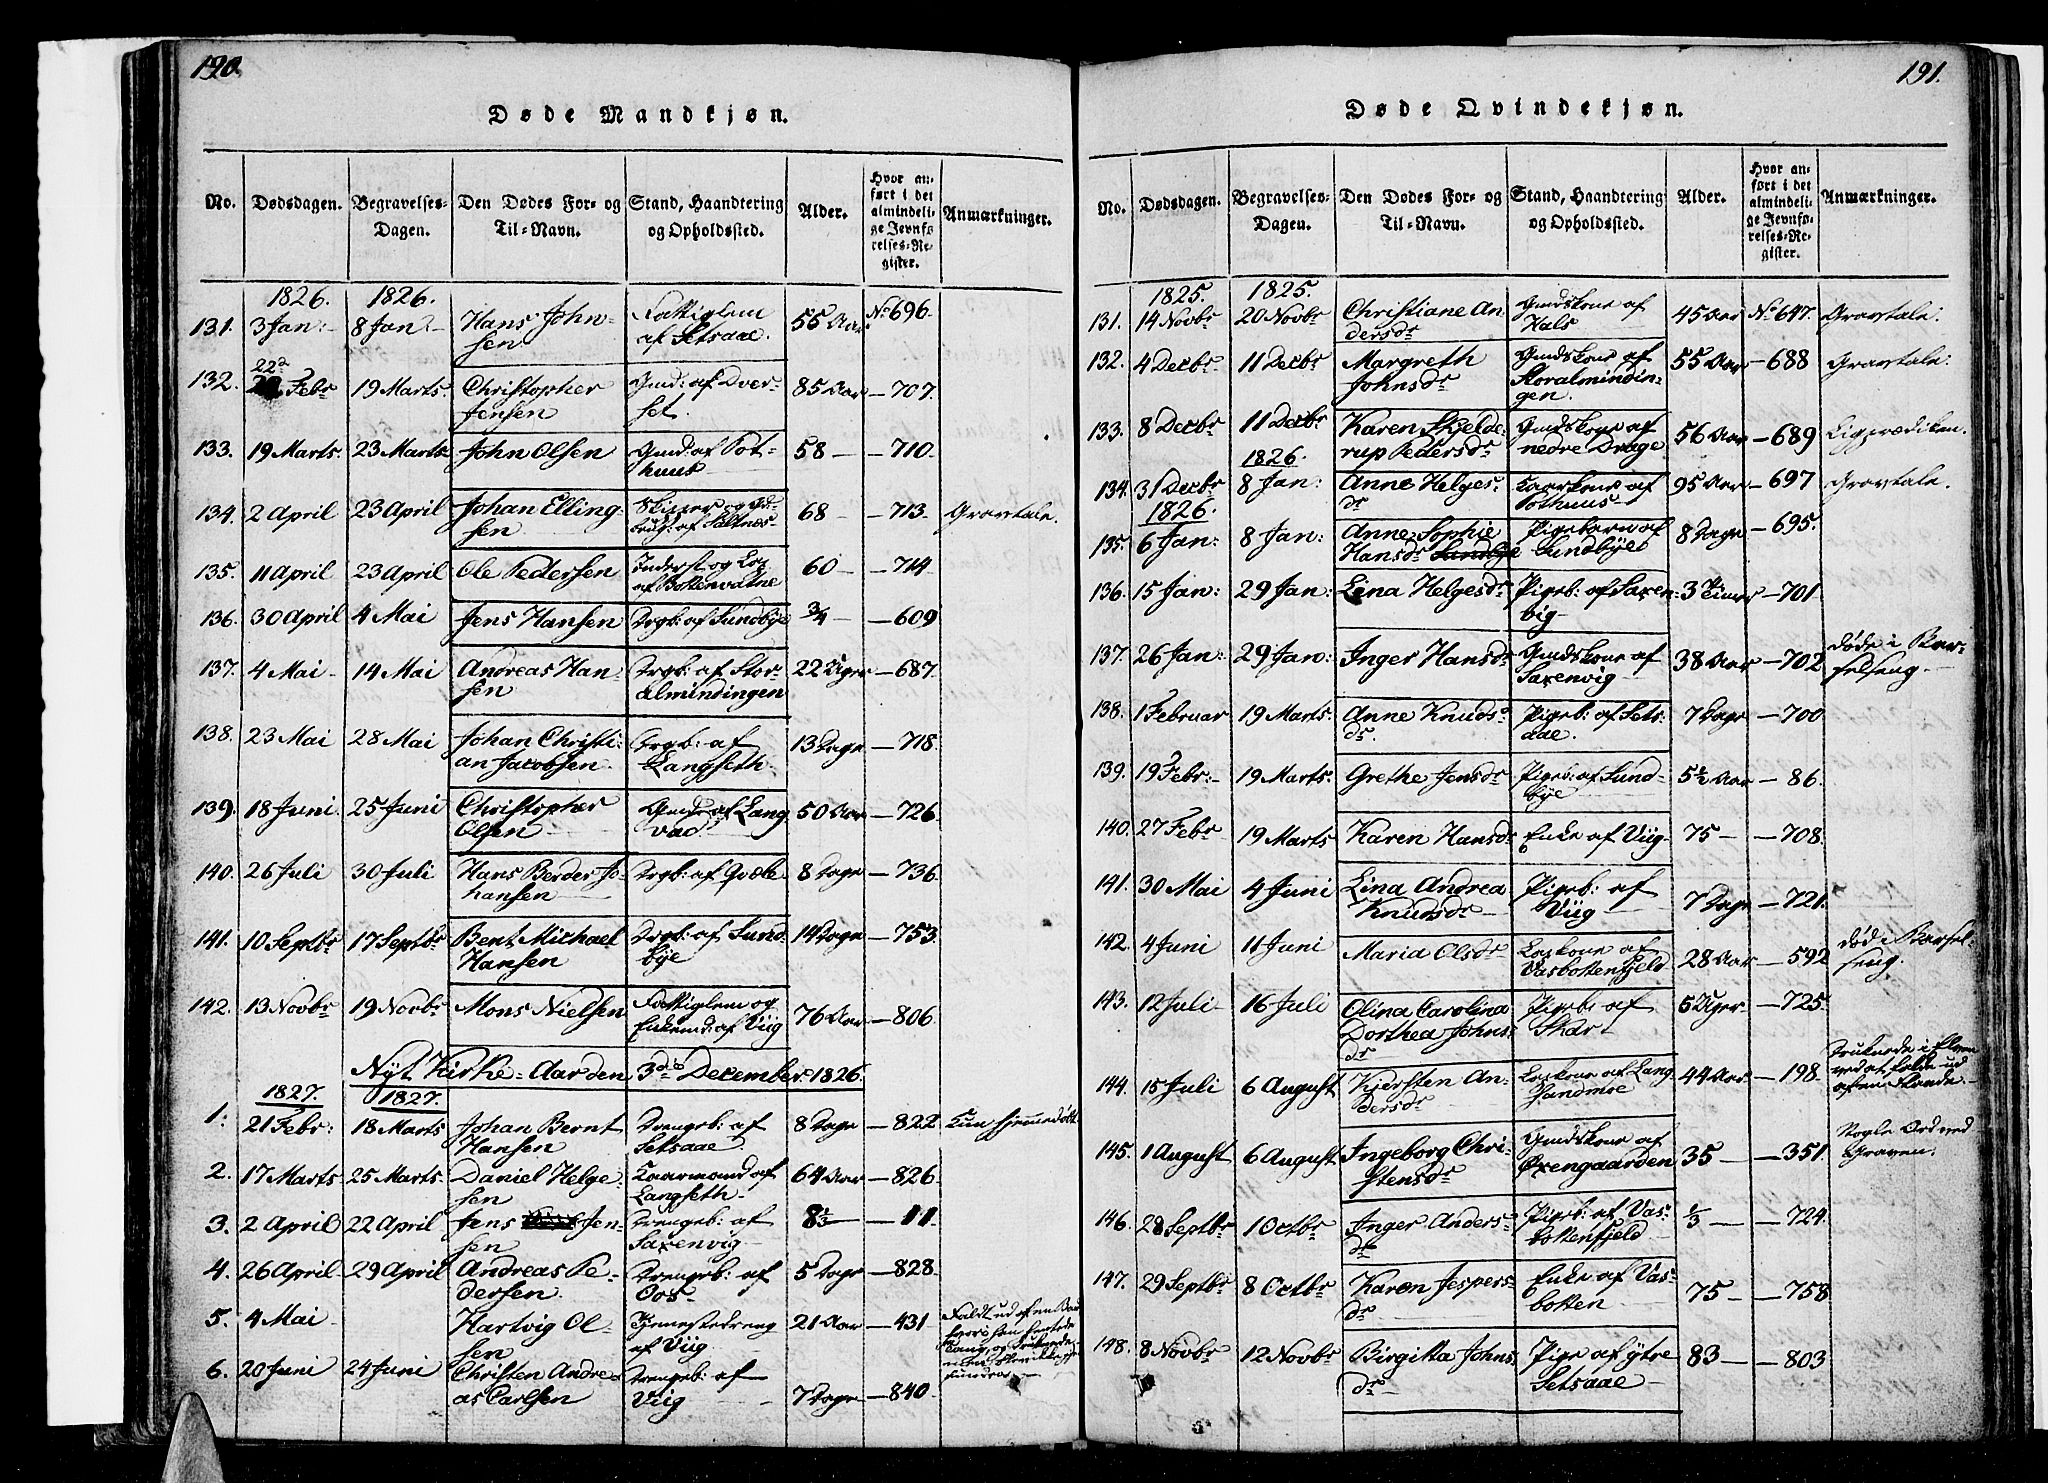 190.
Døde Mandkjøn.
No. Dødsdagen. Begravelses-Dagen. Den Dødes For- og Til-Navn. Stand, Haandtering og Opholdssted. Alder. Hvor anført i det almindelige Jevnførelses-Register. Anmærkninger.
1826. 1826.
131. 3 Jan:- 8 Jan:- Hans Johnsen Fattiglem af Setsaae. 55 Aar No 696.
132. 22de Febr 19 Marts. Christopher Jensen Gmd: af Dverset. 85 Aar - 707.
133. 19 Marts. 23 Marts. John Olsen Gmd af Pothuus 58 - 710.
134. 2 April 23 April Johan Ellingsen af Saltnes 68 - 713. Gravtale.
135. 11 April 23 April Ole Pedersen Inderst og Los af Bottenvatne 60 - 714
136. 30 April 4 Mai Jens Hansen Drgb: af Sundbye 3/4 - 609
137. 4 Mai - 14 Mai Andreas Hansen Drgb: af Storalmindingen 22 Uger - 687.
138. 23 Mai 28 Mai Johan Christian Jacobsen. Drgb: af Langseth. 13 Dage - 718.
139. 18 Juni 25 Juni Christopher Olsen Gmd af Langvad 50 Aar - 726.
140. 26 Juli 30 Juli Hans Berder Johansen Drgb: af Qvæle 8 Dage - 736.
141. 10 Septbr 17 Septbr Bent Michael Hansen Drgb: af Sundbye 14 Dage - 753.
142. 13 Novbr 19 Novbr Mons Nielsen Fattiglem og Enkemd: af Viig 76 Aar - 806.
Nyt Kirke-Aar den 3de December 1826.
1827. 1827.
1. 21 Febr: 18 Marts Johan Bernt Hansen Drengeb: af Setsaae 8 Dage - 822 Kun hjemmedøbt
2. 17 Marts 25 Marts. Daniel Helgesen Kaarmand af Langseth 64 Aar - 826.
3. 2 April 22 April Jens Jensen Drengeb: af Saxenvig 8 1/3 - 11.
4. 26 April 29 April Andreas Pedersen. Drengeb: af Oos 5 Dage - 828.
5. 4 Mai Hartvig Olsen Tjenestedreng af Viig 21 Aar - 431 Faldt ud af en Baad hvori han hentede Tang, og druknede
6. 20 Juni 24 Juni Christen Andreas Carlsen Drengeb: af Viig 7 Dage - 840.
191.
Døde Qvindekjøn.
No. Dødsdagen. Begravelses-Dagen. Den Dødes For- og Til-Navn. Stand, Haandtering og Opholdssted. Alder. Hvor anført i det almindelige Jevnførelses-Register. Anmærkninger.
1825. 1825.
131. 14 Novbr 20 Novbr Christiane Andersdr Gmdskone af Hals 45 Aar No 647. Gravtale.
132. 4 Decbr 11 Decbr Margreth Johnsdr Gmdskone af Storalmindingen. 55 Aar - 688 Gravtale.
133. 8 Decbr 11 Decbr Karen Skjelderup Pedersdr Gmdskone af nedre Drage 56 Aar - 689 Ligprædiken.
1826.
134. 31 Decbr 8 Jan: Anne Helgesdr Kaarkone af Pothuus 95 Aar - 697 Gravtale.
1826.
135. 6 Jan: 8 Jan: Anne Sophie Hansdr Sundbye Pigebarn af Sundbye 8 Dage - 695.
136. 15 Jan: 29 Jan: Lina Helgesdr Pigeb: af Saxenvig 3 Timer - 701.
137. 26 Jan: 29 Jan: Inger Hansdr Gmdskone af Saxenvig 38 Aar - 702 døde i Barselseng
138. 1 Februar 19 Marts. Anne Knudsdr. Pigeb: af Setsaae. 7 Dage - 700
139. 19 Febr: 19 Marts. Grethe Jensdr Pigeb: af Sundbye 5 1/2 Aar - 86.
140. 27 Febr 19 Marts Karen Hansdr Enke af Viig 75 - 708.
141. 30 Mai 4 Juni Lina Andrea Knudsdr Pigeb: af Viig 7 Dage - 721.
142. 4 Juni 11 Juni Maria Olsdr Loskone af Vasbottenfjeld 28 Aar - 592 død i Barselseng.
143. 12 Juli 16 Juli Olina Carolina Dorthea Johnsdr Pigeb: af Skar 5 Uger - 725.
144. 15 Juli 6 August Kjersten Andersdr Loskone af Langsandmoe 44 Aar - 198 Druknede i Elven ved at falde ud af en Skøde.
145. 1 August 6 August Ingeborg Christensdr Gmdskone af Øxengaarden 35 - 351. Nogle Ord ved Graven:
146. 28 Septbr 1 Octbr Inger Andersdr Pigeb: af Vasbottenfjeld 1/3 - 724.
147. 29 Septbr 8 Octbr Karen Jespersdr Enke af Vasbotten 75 - 758
148. 8 Novbr 12 Novbr Birgitta Johnsdr Pige af ytre Setsaae 83 - 803